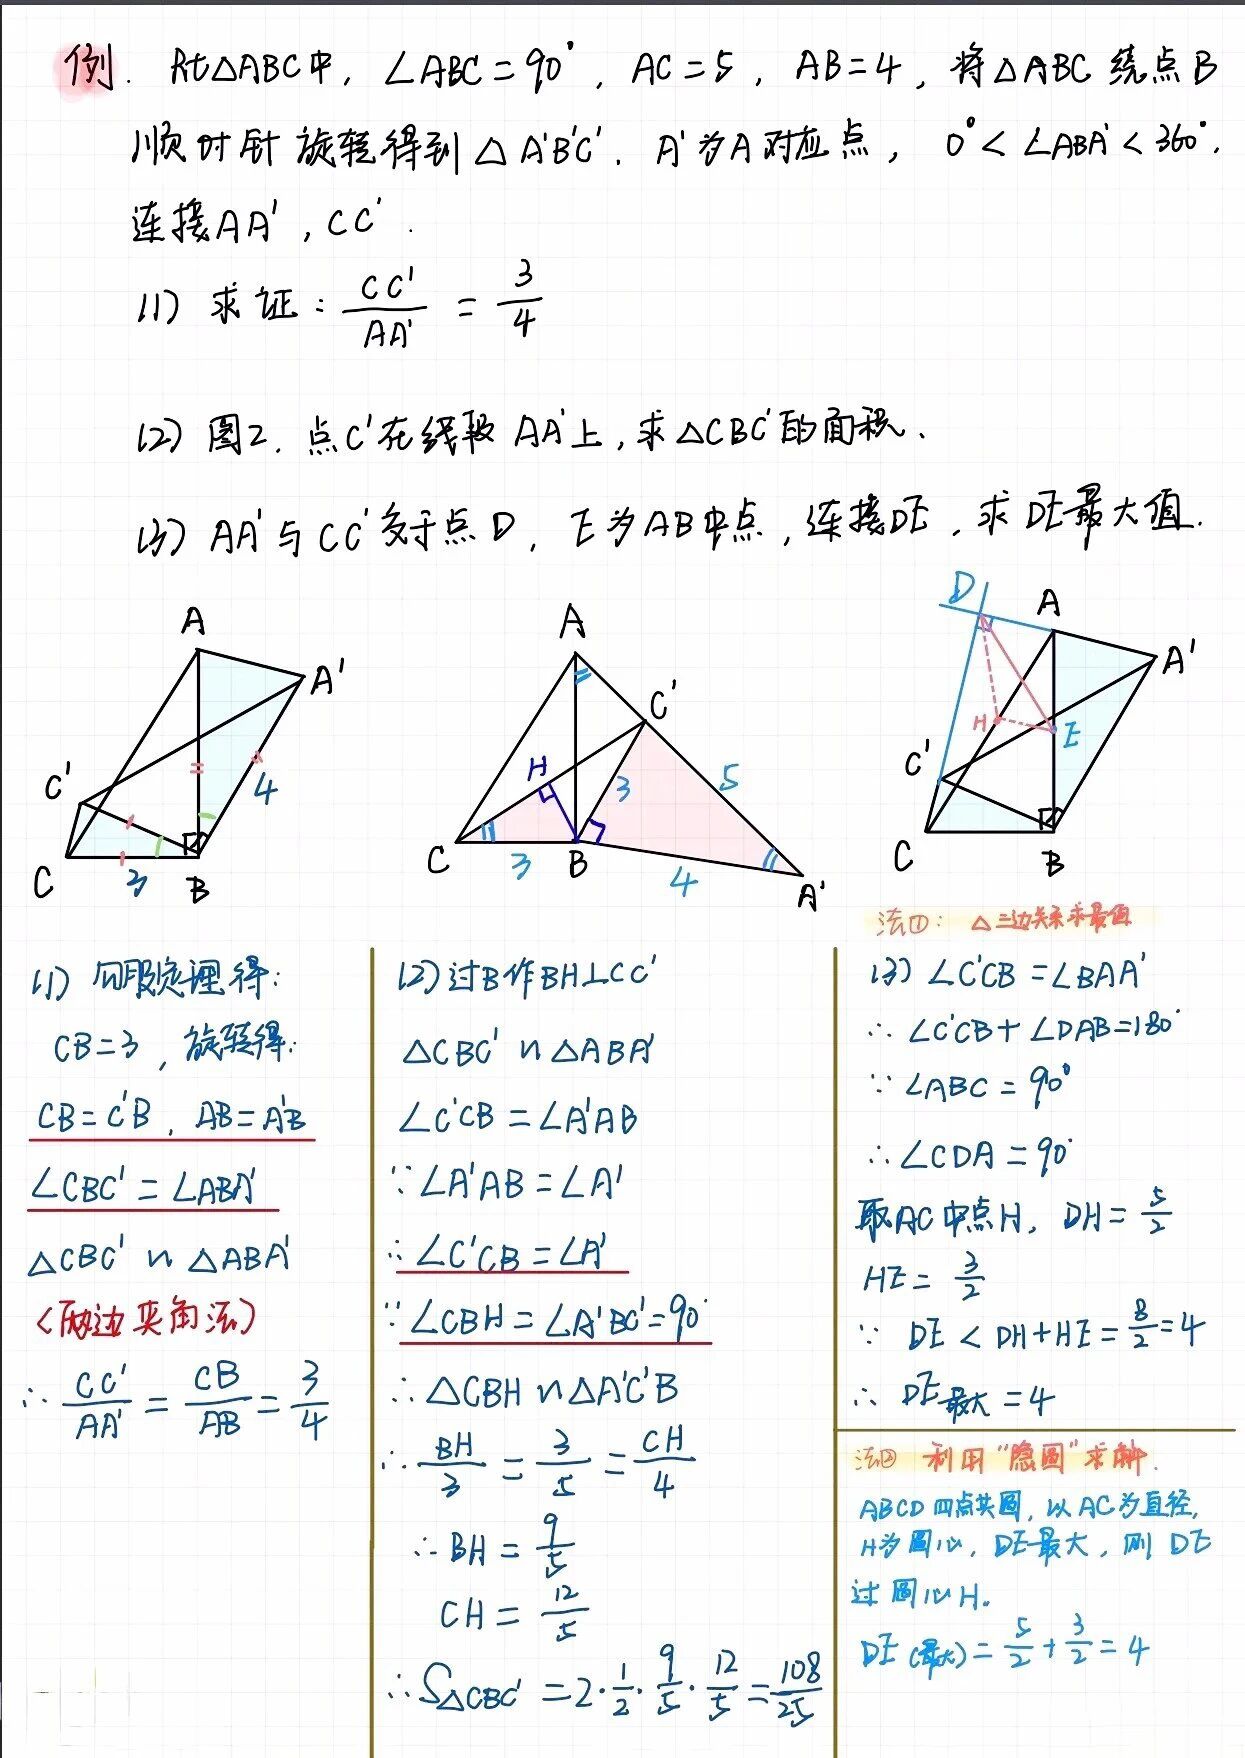 例. Rt△ABC中, ∠ABC=90°, AC=5, AB=4, 将△ABC绕点B
顺时针旋转得到△A'B'C'. A'为A对应点, 0°<∠ABA'<360°.
连接AA', CC'.
(1) 求证: CC'/AA' = 3/4
(2) 图2. 点C'在线段AA'上, 求△CBC'的面积.
(3) AA'与CC'交于点D, E为AB中点, 连接DE, 求DE最大值.
A
A'
C'
4
C
3
B
A
C'
H
3
5
C
3
B
4
A'
D
A
A'
H
E
C'
C
B
法①: △三边关系求最值
(1) 勾股定理得:
CB=3, 旋转得:
CB=C'B, AB=A'B
∠CBC'=∠ABA'
△CBC'∽△ABA'
(两边夹角法)
∴ CC'/AA' = CB/AB = 3/4
(2) 过B作BH⊥CC'
△CBC'∽△ABA'
∠C'CB=∠A'AB
∵∠A'AB=∠A'
∴∠C'CB=∠A'
∵∠CBH=∠A'BC'=90°
∴△CBH∽△A'C'B
∴ BH/3 = 3/5 = CH/4
∴BH = 9/5
CH = 12/5
∴S△CBC' = 2·1/2·9/5·12/5 = 108/25
(3) ∠C'CB=∠BAA'
∴∠C'CB+∠DAB=180°
∵∠ABC=90°
∴∠CDA=90°
取AC中点H, DH=5/2
HE=3/2
∵ DE<DH+HE=8/2=4
∴ DE最大=4
法② 利用"隐圆"求解.
ABCD四点共圆, 以AC为直径,
H为圆心, DE最大, 则DE
过圆心H.
DE(最大)=5/2+3/2=4